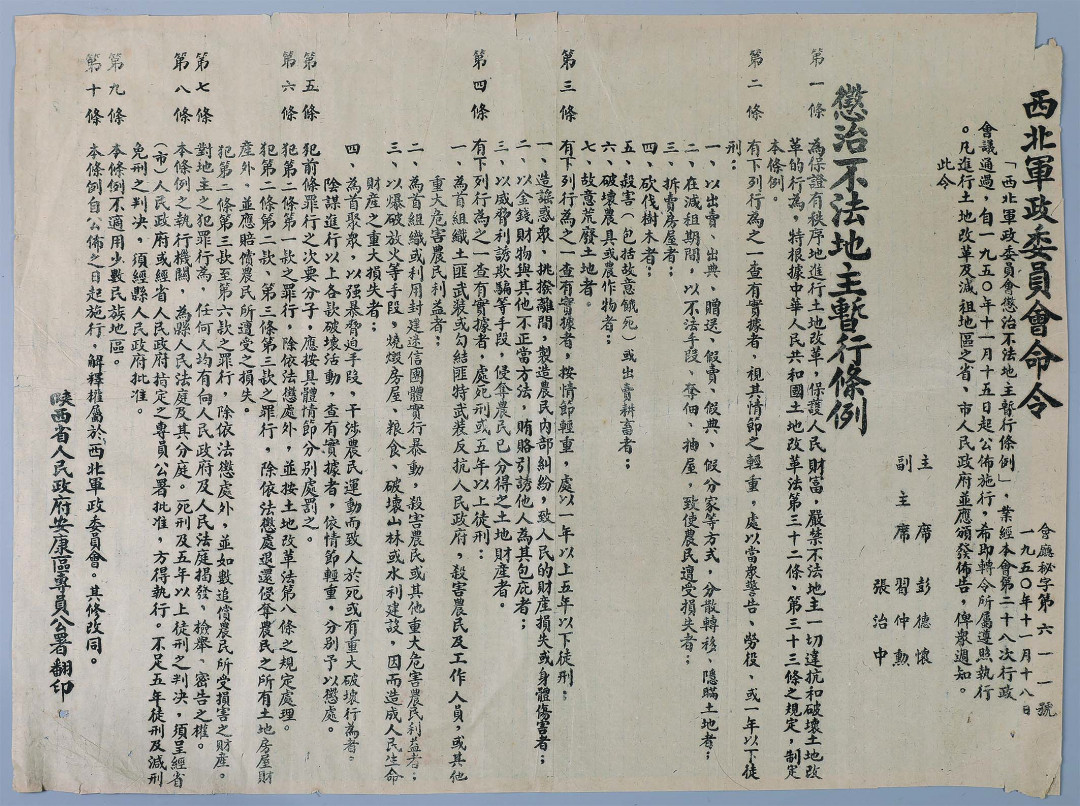 西北軍政委員會命令
會廳秘字第六一一號
一九五〇年十一月十八日
「西北軍政委員會懲治不法地主暫行條例」，業經本會第二十八次行政
會議通過，自一九五〇年十一月十五日起公佈施行，希即轉令所屬遵照執行
。凡進行土地改革及減祖地區之省、市人民政府並應頒發佈告，俾衆週知。
此令
主席 彭德懷
副主席 習仲勳
張治中
懲治不法地主暫行條例
第一條 為保證有秩序地進行土地改革，保護人民財富，嚴禁不法地主一切違抗和破壞土地改
革的行為，特根據中華人民共和國土地改革法第三十二條、第三十三條之規定，制定
本條例。
第二條 有下列行為之一查有實據者，視其情節之輕重，處以當衆警告、勞役、或一年以下徒
刑：
一、以出賣、出典、贈送、假賣、假典、假分家等方式，分散轉移、隱瞞土地者；
二、在減租期間，以不法手段、奪佃、抽屋，致使農民遭受損失者；
三、拆賣房屋者；
四、砍伐樹木者；
五、殺害（包括故意餓死）或出賣耕畜者；
六、破壞農具或農作物者；
七、故意荒廢土地者。
第三條 有下列行為之一查有實據者，按情節輕重，處以一年以上五年以下徒刑：
一、造謠惑衆、挑撥離間，製造農民內部糾紛，致人民的財產損失或身體傷害者；
二、以金錢財物與其他不正當方法，賄賂引誘他人為其包庇者；
三、以威脅利誘欺騙等手段，侵奪農民已分得之土地財產者。
第四條 有下列行為之一查有實據者，處死刑或五年以上徒刑：
一、為首組織土匪武裝或勾結匪特武裝反抗人民政府，殺害農民及工作人員，或其他
重大危害農民利益者；
二、為首組織或利用封建迷信團體實行暴動，殺害農民或其他重大危害農民利益者；
三、以爆破放火等手段，燒燬房屋、粮食、破壞山林或水利建設，因而造成人民生命
財產之重大損失者；
四、為首聚衆，以强暴脅迫手段，干涉農民運動而致人於死或有重大破壞行為者。
陰謀進行以上各款破壞活動，查有實據者，依情節輕重，分別予以懲處。
第五條 犯前條罪行之次要分子，應按具體情節分別處罰之。
第六條 犯第二條第一款之罪行，除依法懲處外，並按土地改革法第八條之規定處理。
犯第二條第二款、第三條第三款之罪行，除依法懲處退還侵奪農民之所有土地房屋財
產外，並應賠償農民所遭受之損失。
犯第二條第三款至第六款之罪行，除依法懲處外，並如數追償農民所受損害之財產。
第七條 對地主之犯罪行為，任何人均有向人民政府及人民法庭揭發、檢舉、密告之權。
第八條 本條例之執行機關，為縣人民法庭及其分庭。死刑及五年以上徒刑之判決，須呈經省
（市）人民政府或經省人民政府持定之專員公署批准，方得執行。不足五年徒刑及減刑
免刑之判决，須經縣人民政府批准。
第九條 本條例不適用少數民族地區。
第十條 本條例自公佈之日起施行，解釋權屬於西北軍政委員會。其修改同。
陝西省人民政府安康區專員公署翻印